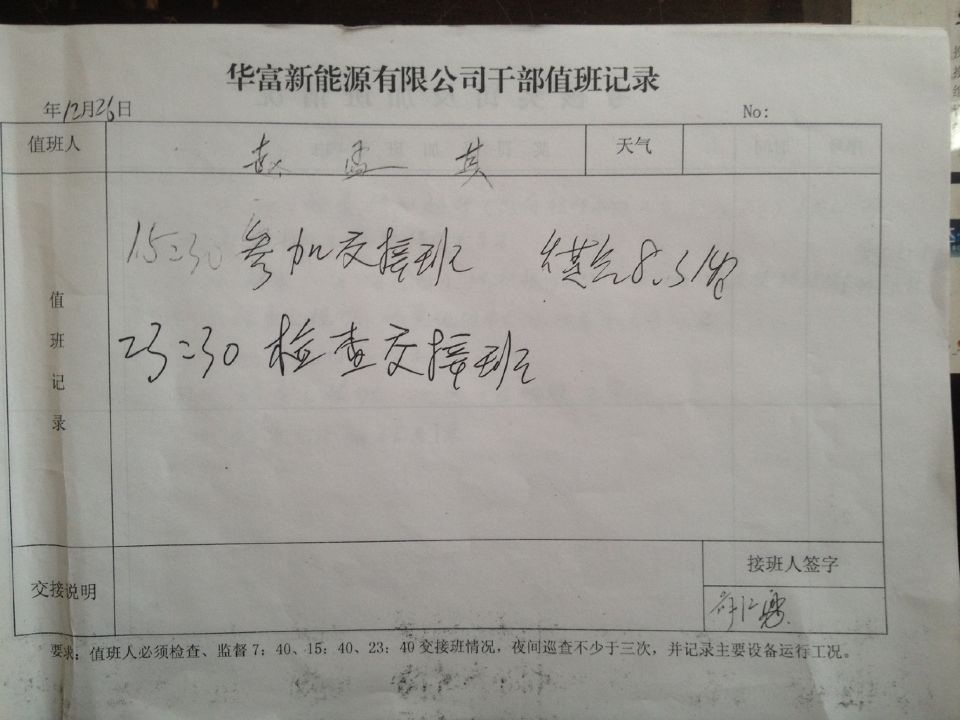 华富新能源有限公司干部值班记录
年12月26日
No:
值班人
赵孟其
天气
值班记录
15:30 参加交接班 供气8.3
23:30 检查交接班
交接说明
接班人签字
要求:值班人必须检查、监督7:40、15:40、23:40交接班情况,夜间巡查不少于三次,并记录主要设备运行工况。